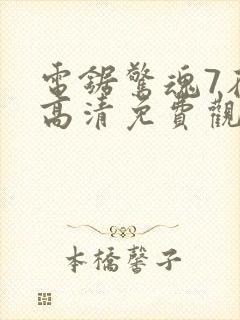 電鋸驚魂7在
高清免費觀
本橋馨子